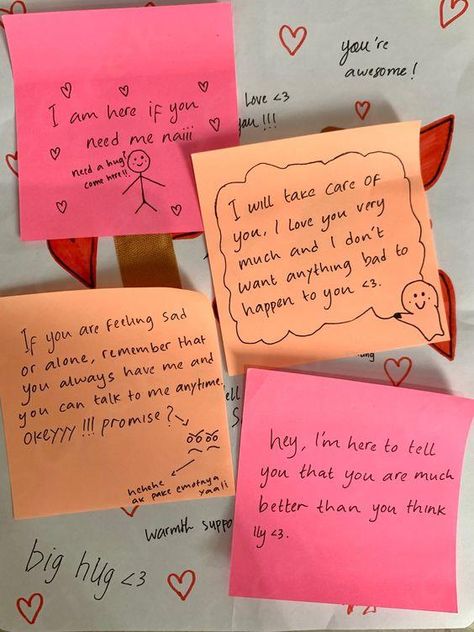 you're
awesome!
I am here if you
need me naiii
need a hug!
come here!!
Love <3
you!!!
I will take care of
you, I love you very
much and I don't
want anything bad to
happen to you <3.
If you are feeling sad
or alone, remember that
you always have me and
you can talk to me anytime.
OKEYYY !!! promise?
hehehe
ak pake emotaya
xaali
hey, I'm here to tell
you that you are much
better than you think
lly <3.
warmth
big hug <3